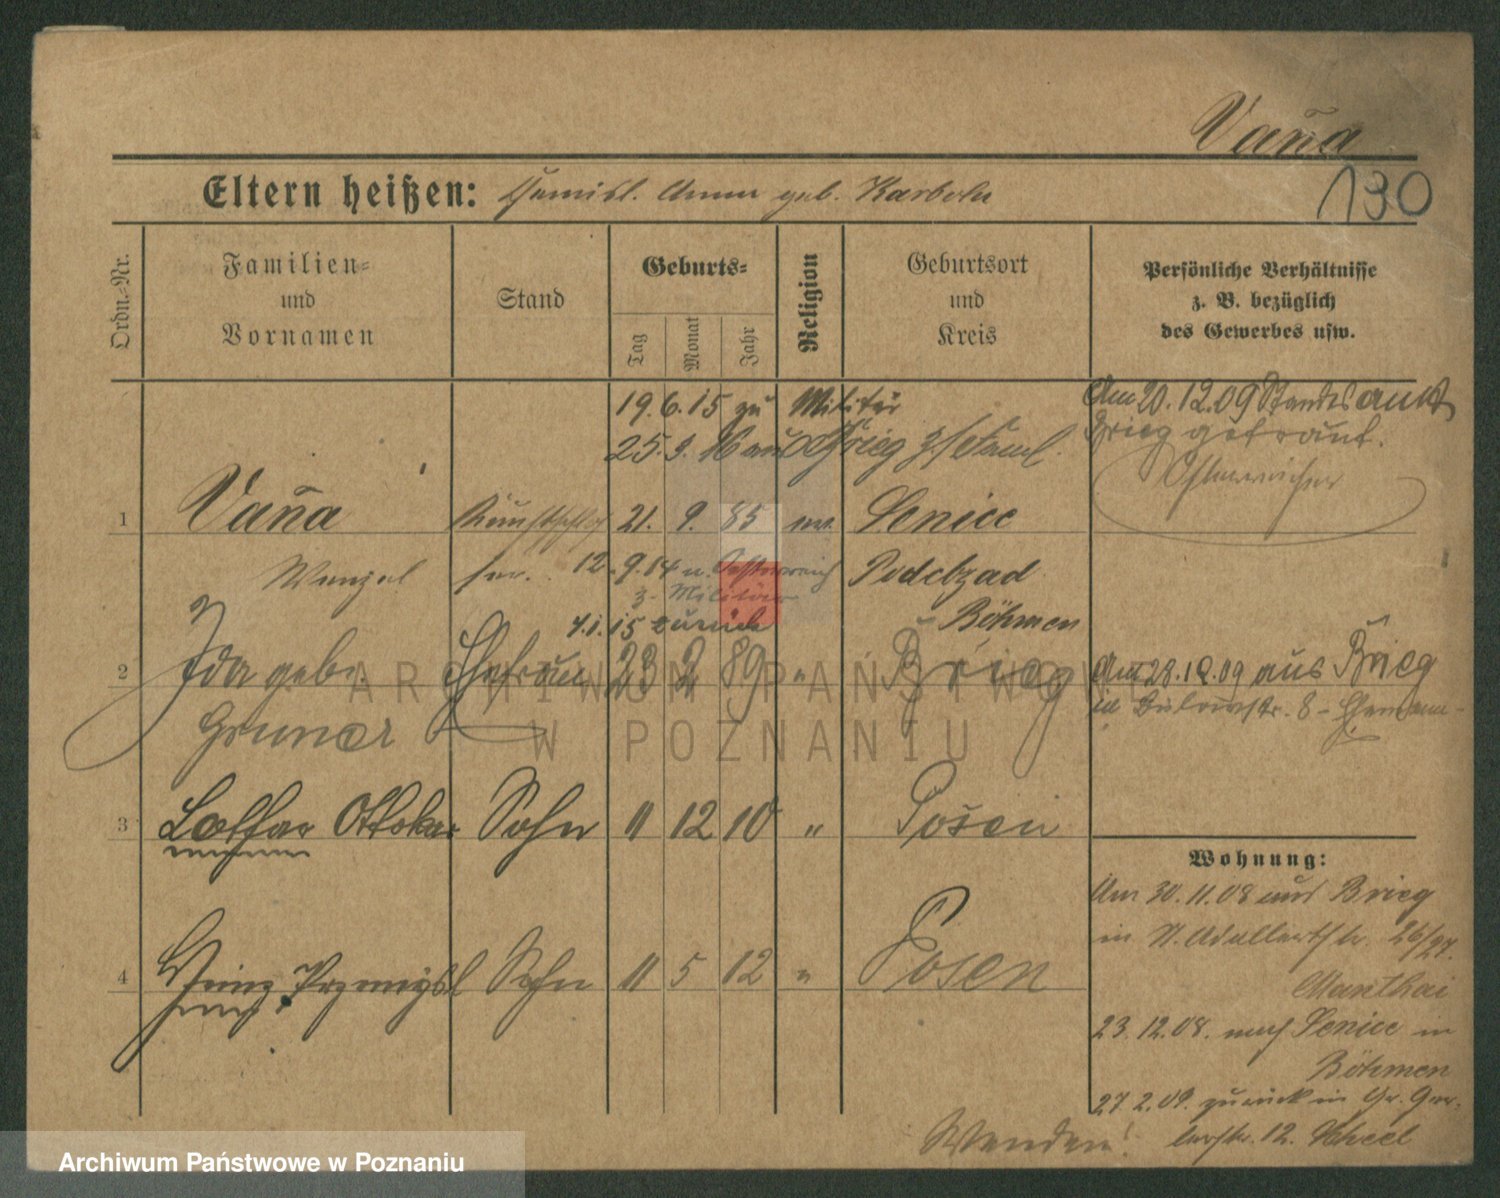 Vaňa
130
Eltern heißen: Anna geb. Karbola
Ordn.-Nr.
Familien- und Vornamen
Stand
Geburts-
Tag Monat Jahr
Religion
Geburtsort und Kreis
Persönliche Verhältnisse
z. B. bezüglich
des Gewerbes usw.
19.6.15 zu Militär
25.9. aus Brieg z.
Am 20.12.09 Standesamt
Brieg getraut.
Österreicher
1 Vaňa 21. 9. 85 Senice
Wenzel 12.9.14 n. Oesterreich Podebrad
z. Militär
4.1.15 zurück Böhmen
2 Ida geb. Ehefrau 23 2 89 " Brieg
Gruner
Am 28.12.09 aus Brieg
in Bülowstr. 8 -
3 Lothar Ottokar Sohn 11 12 10 " Posen
4 Heinz Przemysl Sohn 11 5 12 " Posen
Wohnung:
Am 30.11.08 aus Brieg
in St. Adalbertstr. 26/27.
Manthai
23.12.08. nach Senice in
Böhmen
27.2.09. zurück in Gr. Ger-
berstr. 12.
Wenden!
ARCHIWUM PAŃSTWOWE
W POZNANIU
Archiwum Państwowe w Poznaniu